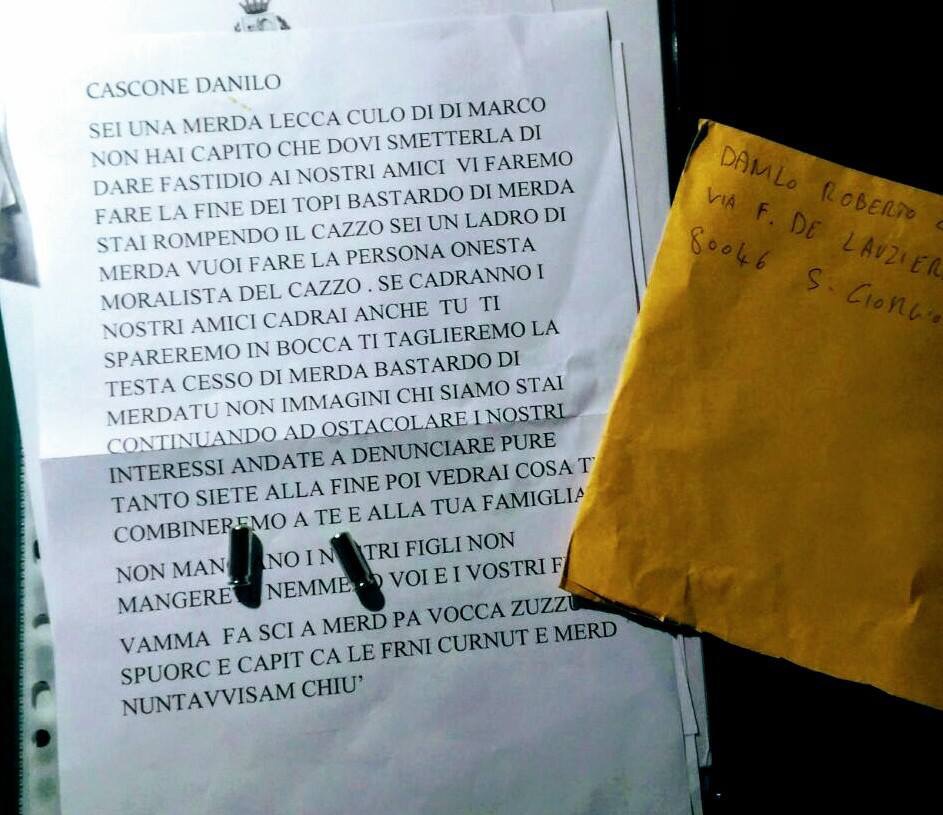 CASCONE DANILO
SEI UNA MERDA LECCA CULO DI DI MARCO
NON HAI CAPITO CHE DOVI SMETTERLA DI
DARE FASTIDIO AI NOSTRI AMICI VI FAREMO
FARE LA FINE DEI TOPI BASTARDO DI MERDA
STAI ROMPENDO IL CAZZO SEI UN LADRO DI
MERDA VUOI FARE LA PERSONA ONESTA
MORALISTA DEL CAZZO . SE CADRANNO I
NOSTRI AMICI CADRAI ANCHE TU TI
SPAREREMO IN BOCCA TI TAGLIEREMO LA
TESTA CESSO DI MERDA BASTARDO DI
MERDATU NON IMMAGINI CHI SIAMO STAI
CONTINUANDO AD OSTACOLARE I NOSTRI
INTERESSI ANDATE A DENUNCIARE PURE
TANTO SIETE ALLA FINE POI VEDRAI COSA
COMBINEREMO A TE E ALLA TUA FAMIGLIA
NON I FIGLI NON
NEMMENO VOI E I VOSTRI
VAMMA FA SCI A MERD PA VOCCA
SPUORC E CAPIT CA LE FRNI CURNUT E MERD
NUNTAVVISAM CHIU'
DANILO ROBERTO
VIA F. DE
80046 S. GIORGIO